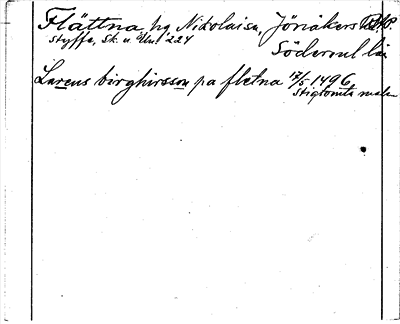 Flättna hg, Nikolai sn, Jönåkers hd.
Styffe, Sk. u. Un. 224
Södermanl. län
Larens birghirsson pa fletna 17/5 1496
Stigtomta